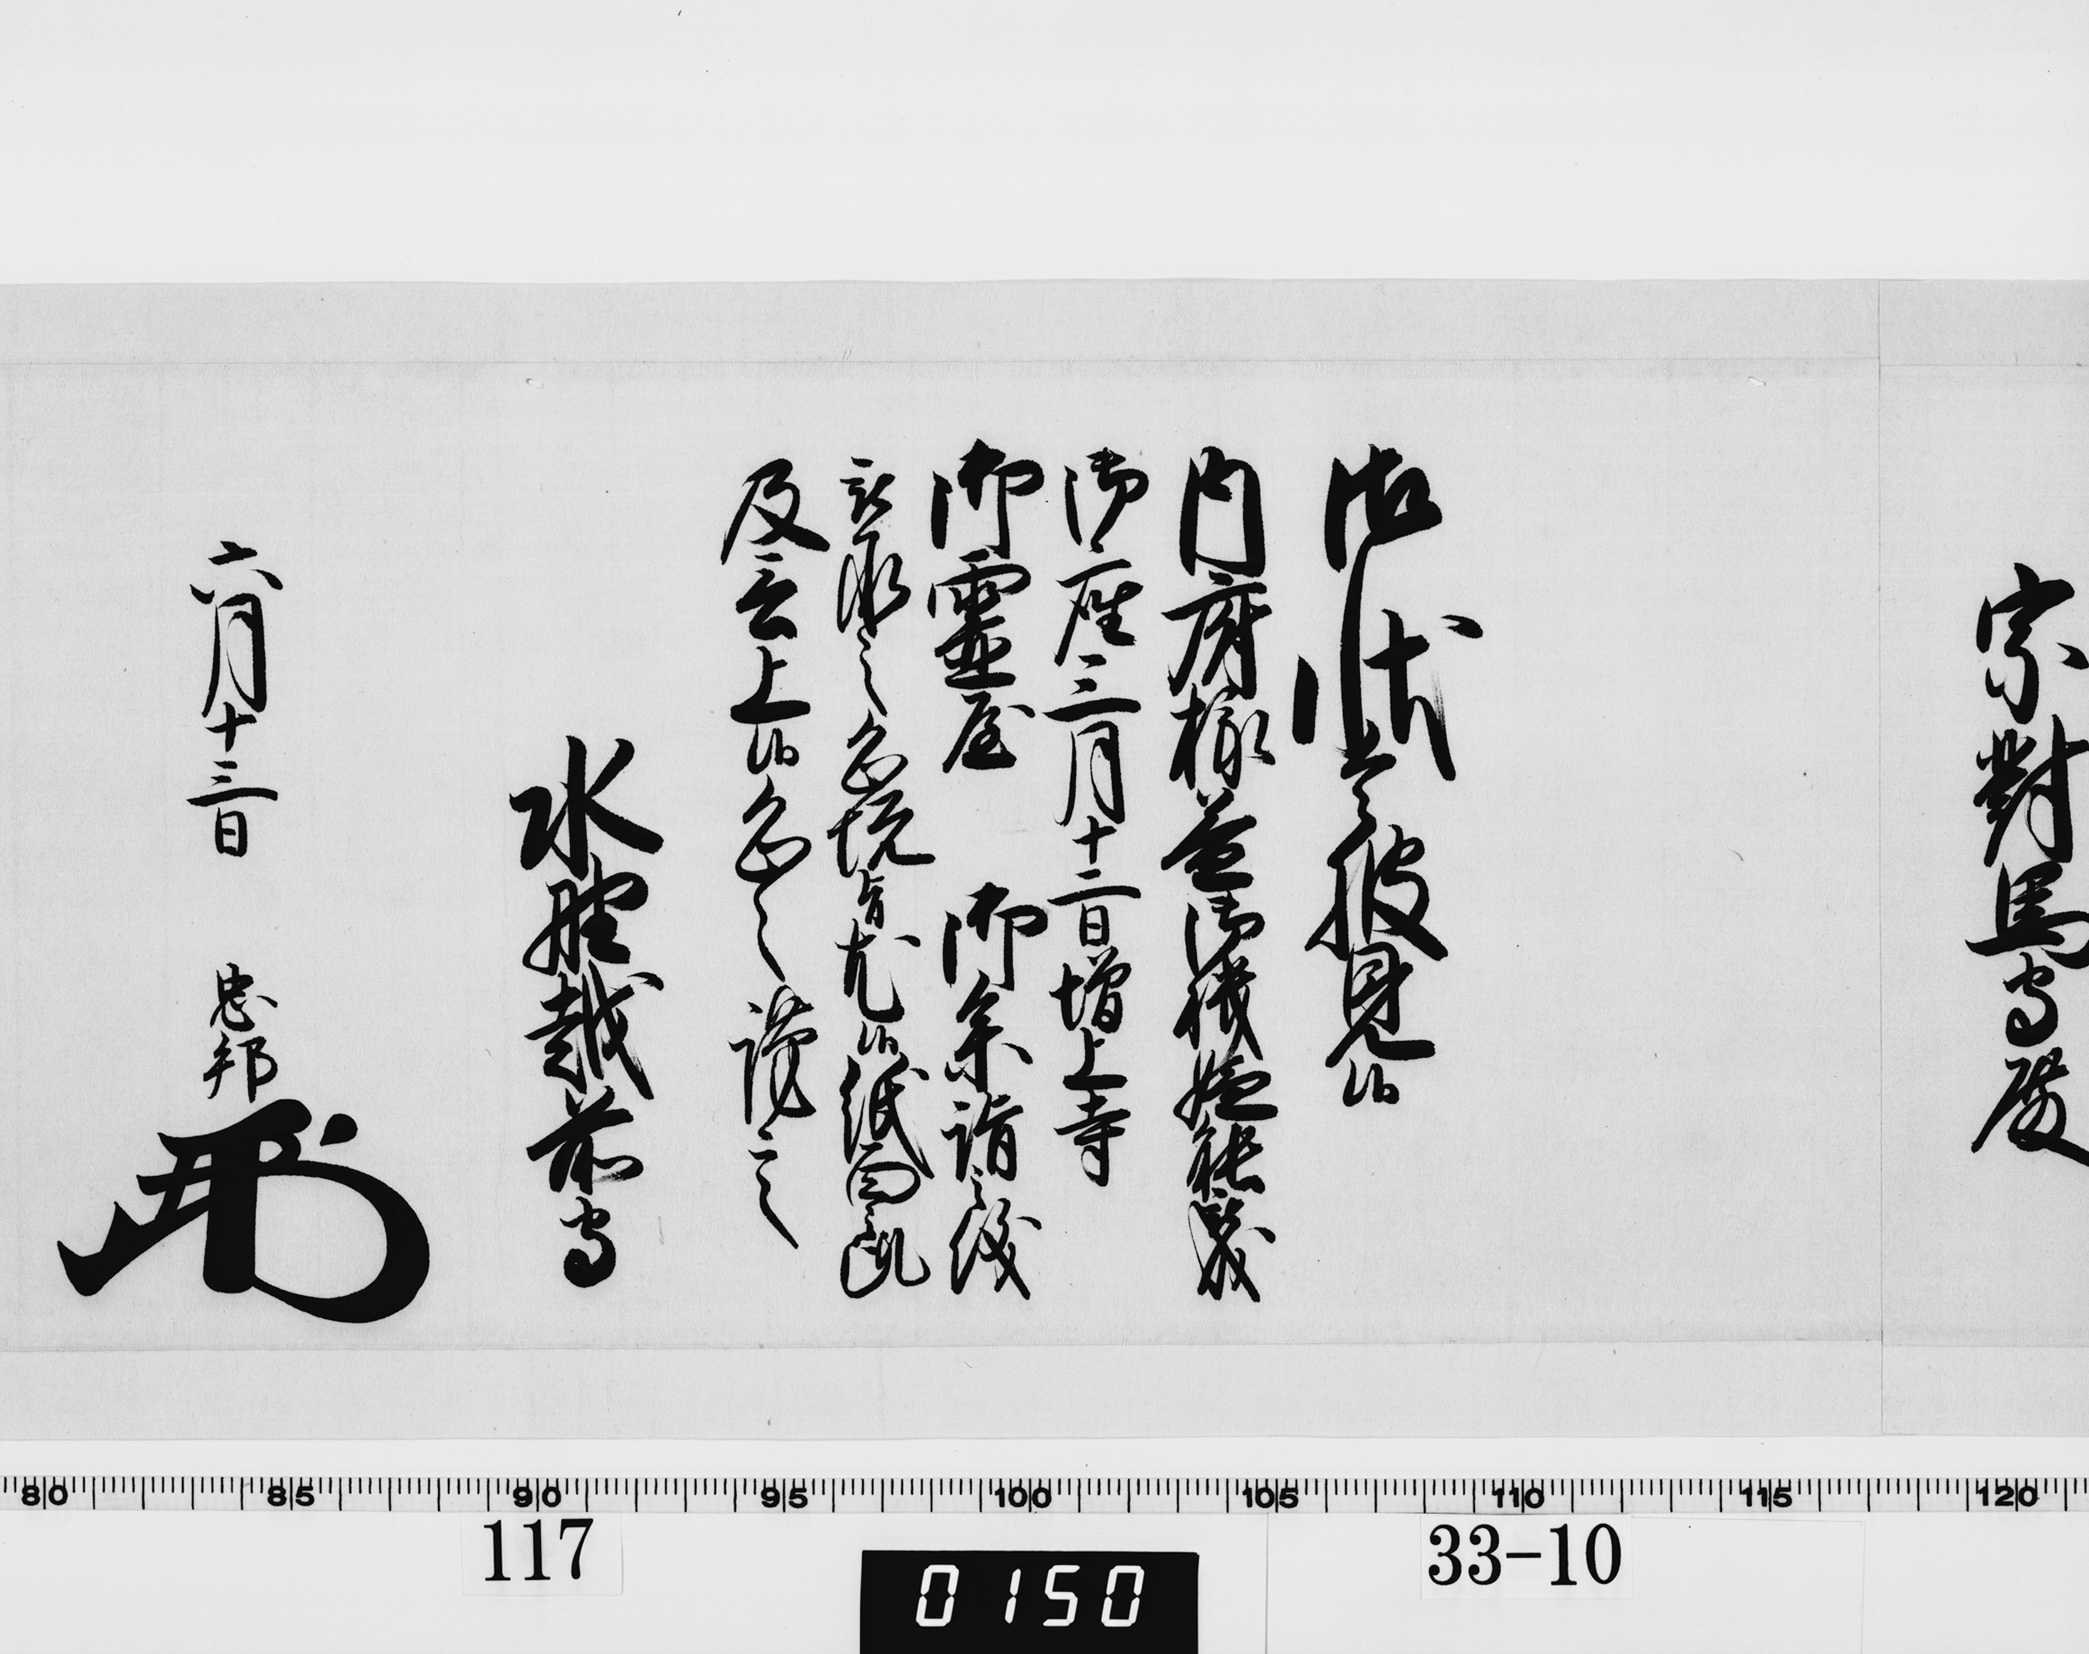 宗對馬守殿
御状令披見候
内府様益御機嫌能被成
御座三月十二日増上寺
御霊屋 御参詣之段
被承之恐悦旨尤候紙面趣
及言上候恐々謹言
水野越前守
六月十三日 忠邦
80 85 90 95 100 105 110 115 120
117
33-10
0150